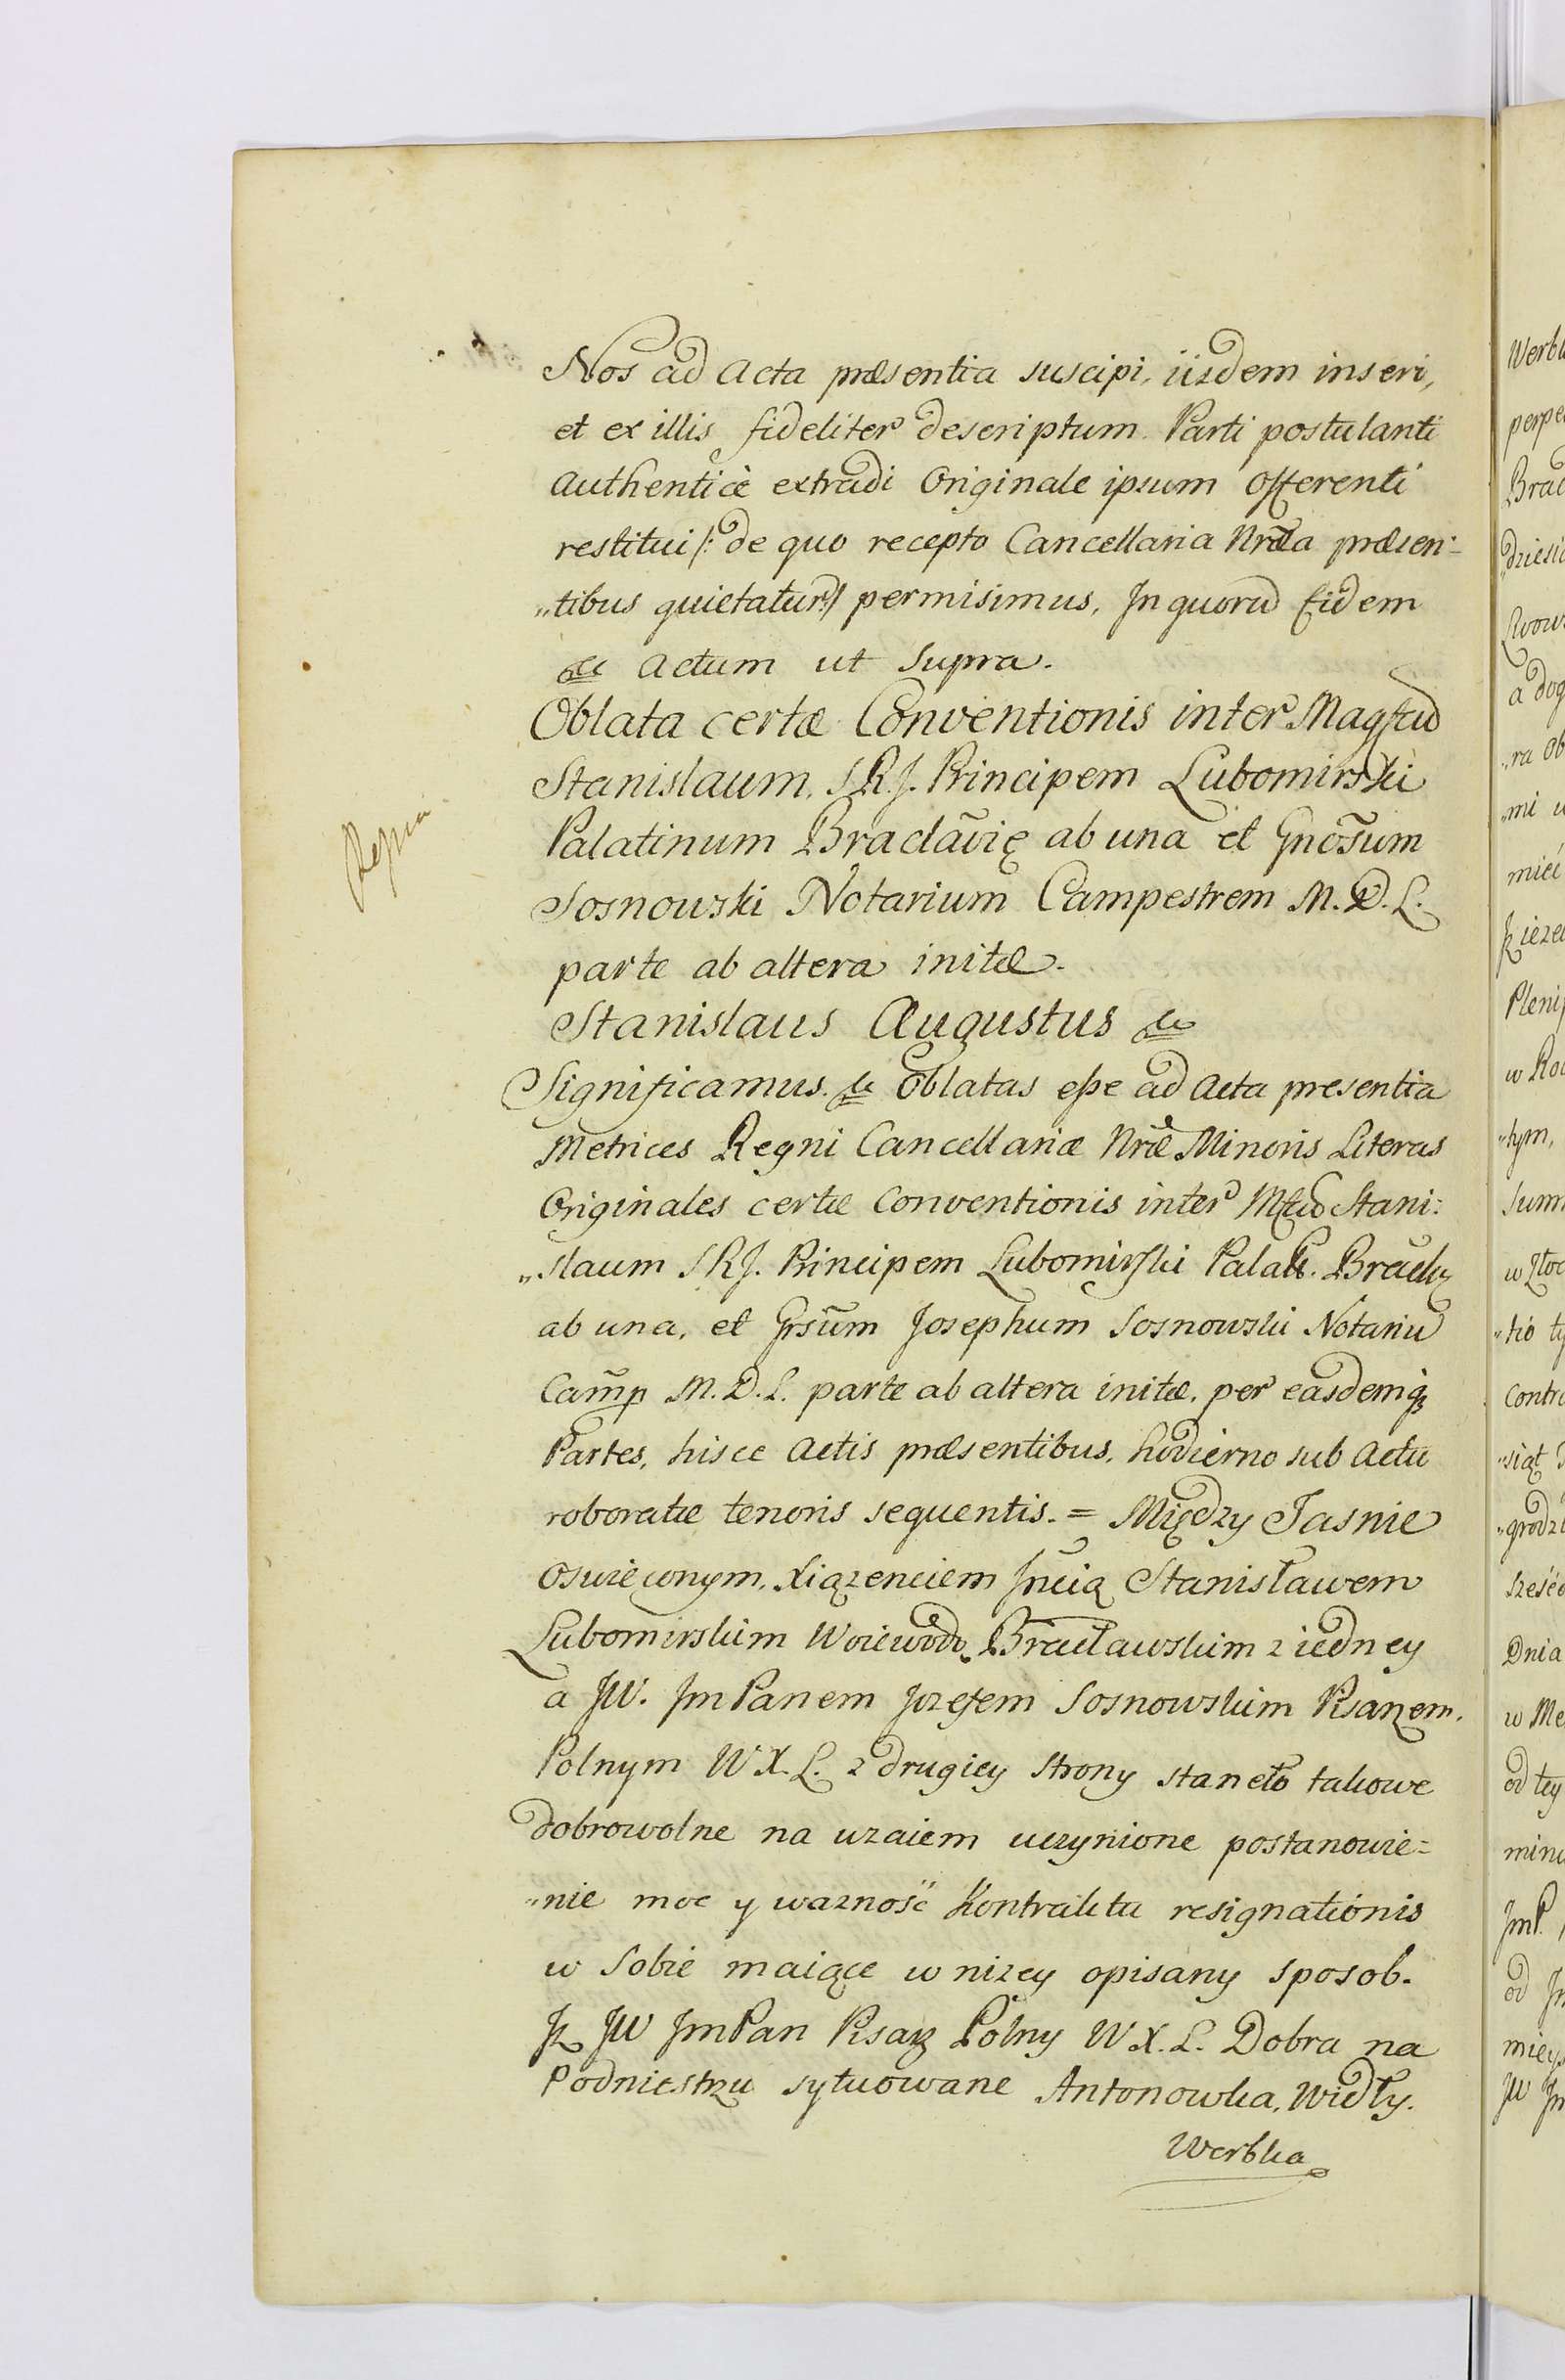 Nos ad Acta præsentia suscipi, iisdem inseri,
et ex illis fideliter descriptum Parti postulanti
Authenticè extradi Originale ipsum Offerenti
restitui /: de quo recepto Cancellaria Nr̃a præsen-
„tibus quietatur :/ permisimus, In quorũ fidem
&c Actum ut supra.
Oblata certæ Conventionis inter Magfcũ
Stanislaum, S.R.J. Principem Lubomirski
Palatinum Braclãvię ab una et Gnõsum
Sosnowski Notarium Campestrem M.D.L.
parte ab altera initæ.
Stanislaus Augustus &c
Significamus &c Oblatas eße ad Acta presentia
Metrices Regni Cancellariæ Nr̃æ Minoris Literas
Originales certæ Conventionis inter Mfcũ Stani:
„slaum SRJ. Principem Lubomirski Palat. Braclꝫ
ab una, et Grsũm Josephum Sosnowski Notariũ
Camp̃ M.D.L. parte ab altera initæ, per easdemqꝫ
Partes, hisce Actis præsentibus, hodierno sub Actu
roboratæ tenoris sequentis. = Między Jasnie
Oswieconym, Xiązenciem Jmcią Stanisławem
Lubomirskim Woiewodo, Bracławskim z iedney
a JW. Jm Panem Jozefem Sosnowskim Pisarzem.
Polnym W.X.L. z drugiey strony staneło takowe
dobrowolne na wzaiem uczynione postanowie=
„nie moc y wazność Kontraktu resignationis
w sobie maiące w nizey opisany sposob.
Jż JW JmPan Pisarz Polny W.X.L. Dobra na
Podniestrzu sytuowane Antonowka, Widły.
Werbka